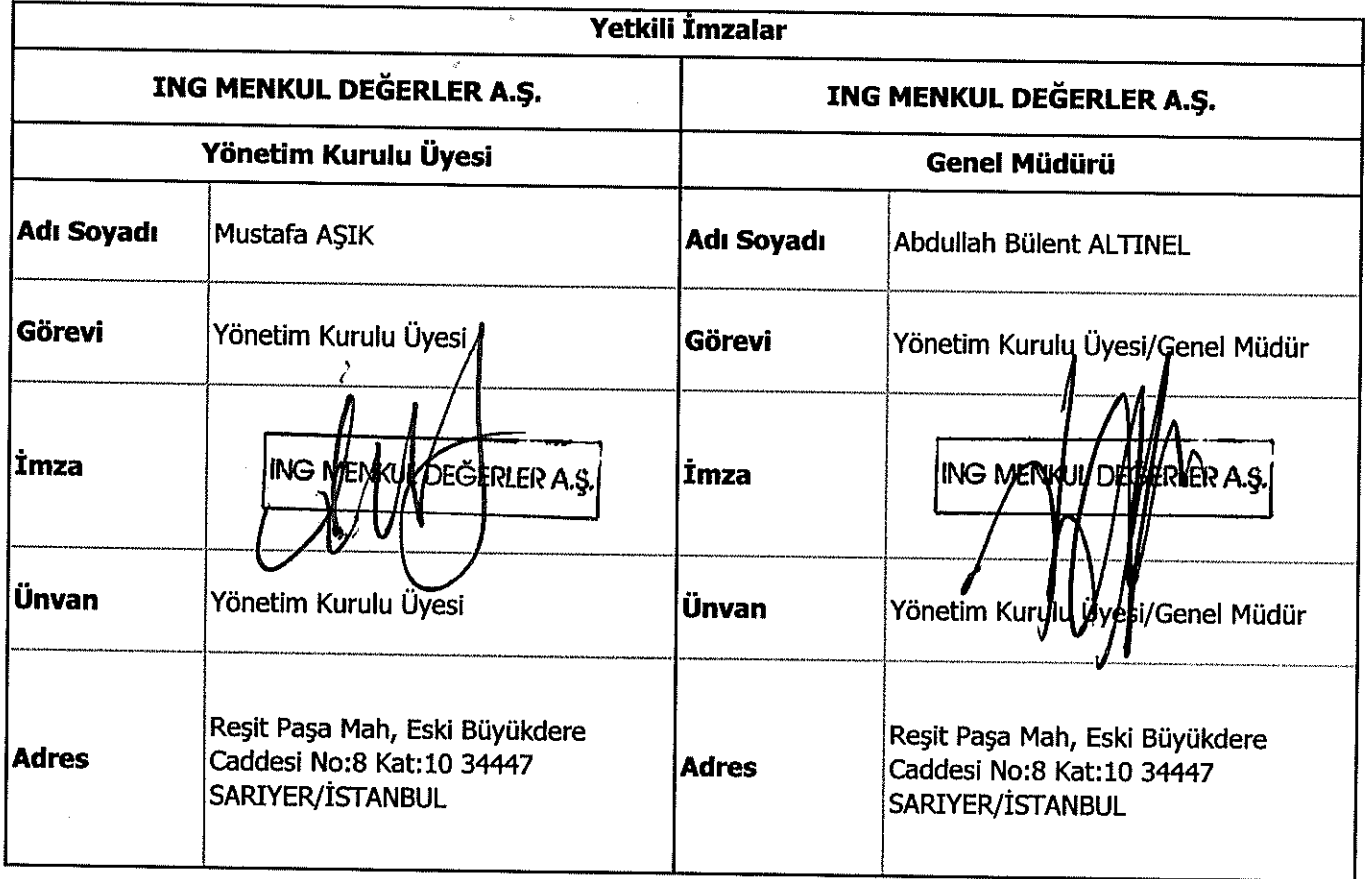 Yetkili İmzalar
ING MENKUL DEĞERLER A.Ş. ING MENKUL DEĞERLER A.Ş.
Yönetim Kurulu Üyesi Genel Müdürü
Adı Soyadı Mustafa AŞIK Adı Soyadı Abdullah Bülent ALTINEL
Görevi Yönetim Kurulu Üyesi Görevi Yönetim Kurulu Üyesi/Genel Müdür
İmza ING MENKUL DEĞERLER A.Ş. İmza ING MENKUL DEĞERLER A.Ş.
Ünvan Yönetim Kurulu Üyesi Ünvan Yönetim Kurulu Üyesi/Genel Müdür
Adres
Reşit Paşa Mah, Eski Büyükdere
Caddesi No:8 Kat:10 34447
SARIYER/İSTANBUL
Adres
Reşit Paşa Mah, Eski Büyükdere
Caddesi No:8 Kat:10 34447
SARIYER/İSTANBUL